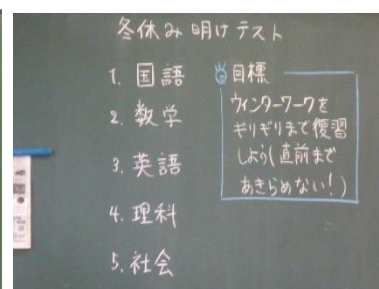 冬休み明けテスト
1. 国語
2. 数学
3. 英語
4. 理科
5. 社会
目標
ウィンターワークを
ギリギリまで復習
しよう(直前まで
あきらめない!)